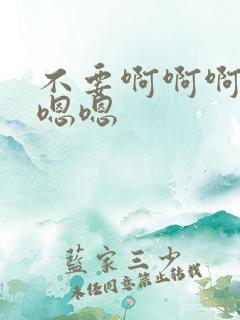 不要啊啊啊
嗯嗯
蓝家三少
未经同意禁止转载